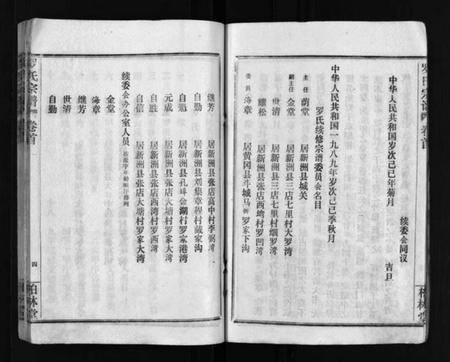 罗氏宗谱 卷首
续委会同议
中华人民共和国岁次己巳年菊月 吉旦
中华人民共和国一九八九年岁次己巳季秋月
罗氏续修宗谱委员会名目
主任 荫堂 居新洲县城关
副主任 金堂 居新洲县三店七里村大罗湾
世清 居新洲县三店七里村烟罗湾
继松 居新洲县张店西湾村罗凹湾
委员 海章 居黄冈县斗城马 罗家下沟
继芳 居新洲县张店高中村李 湾
自勤 居新洲县刘集章程村戴家沟
元成 居新洲县孔埠金湖村罗家港湾
自治 居新洲县张店大塘村罗家大湾
自信 居新洲县张店西湾村罗西湾
自胜 居新洲县张店大塘村罗家大湾
续委会办公室人员
金堂
海章
世清
继芳
自勤
罗氏宗谱 卷首
四
柏林堂